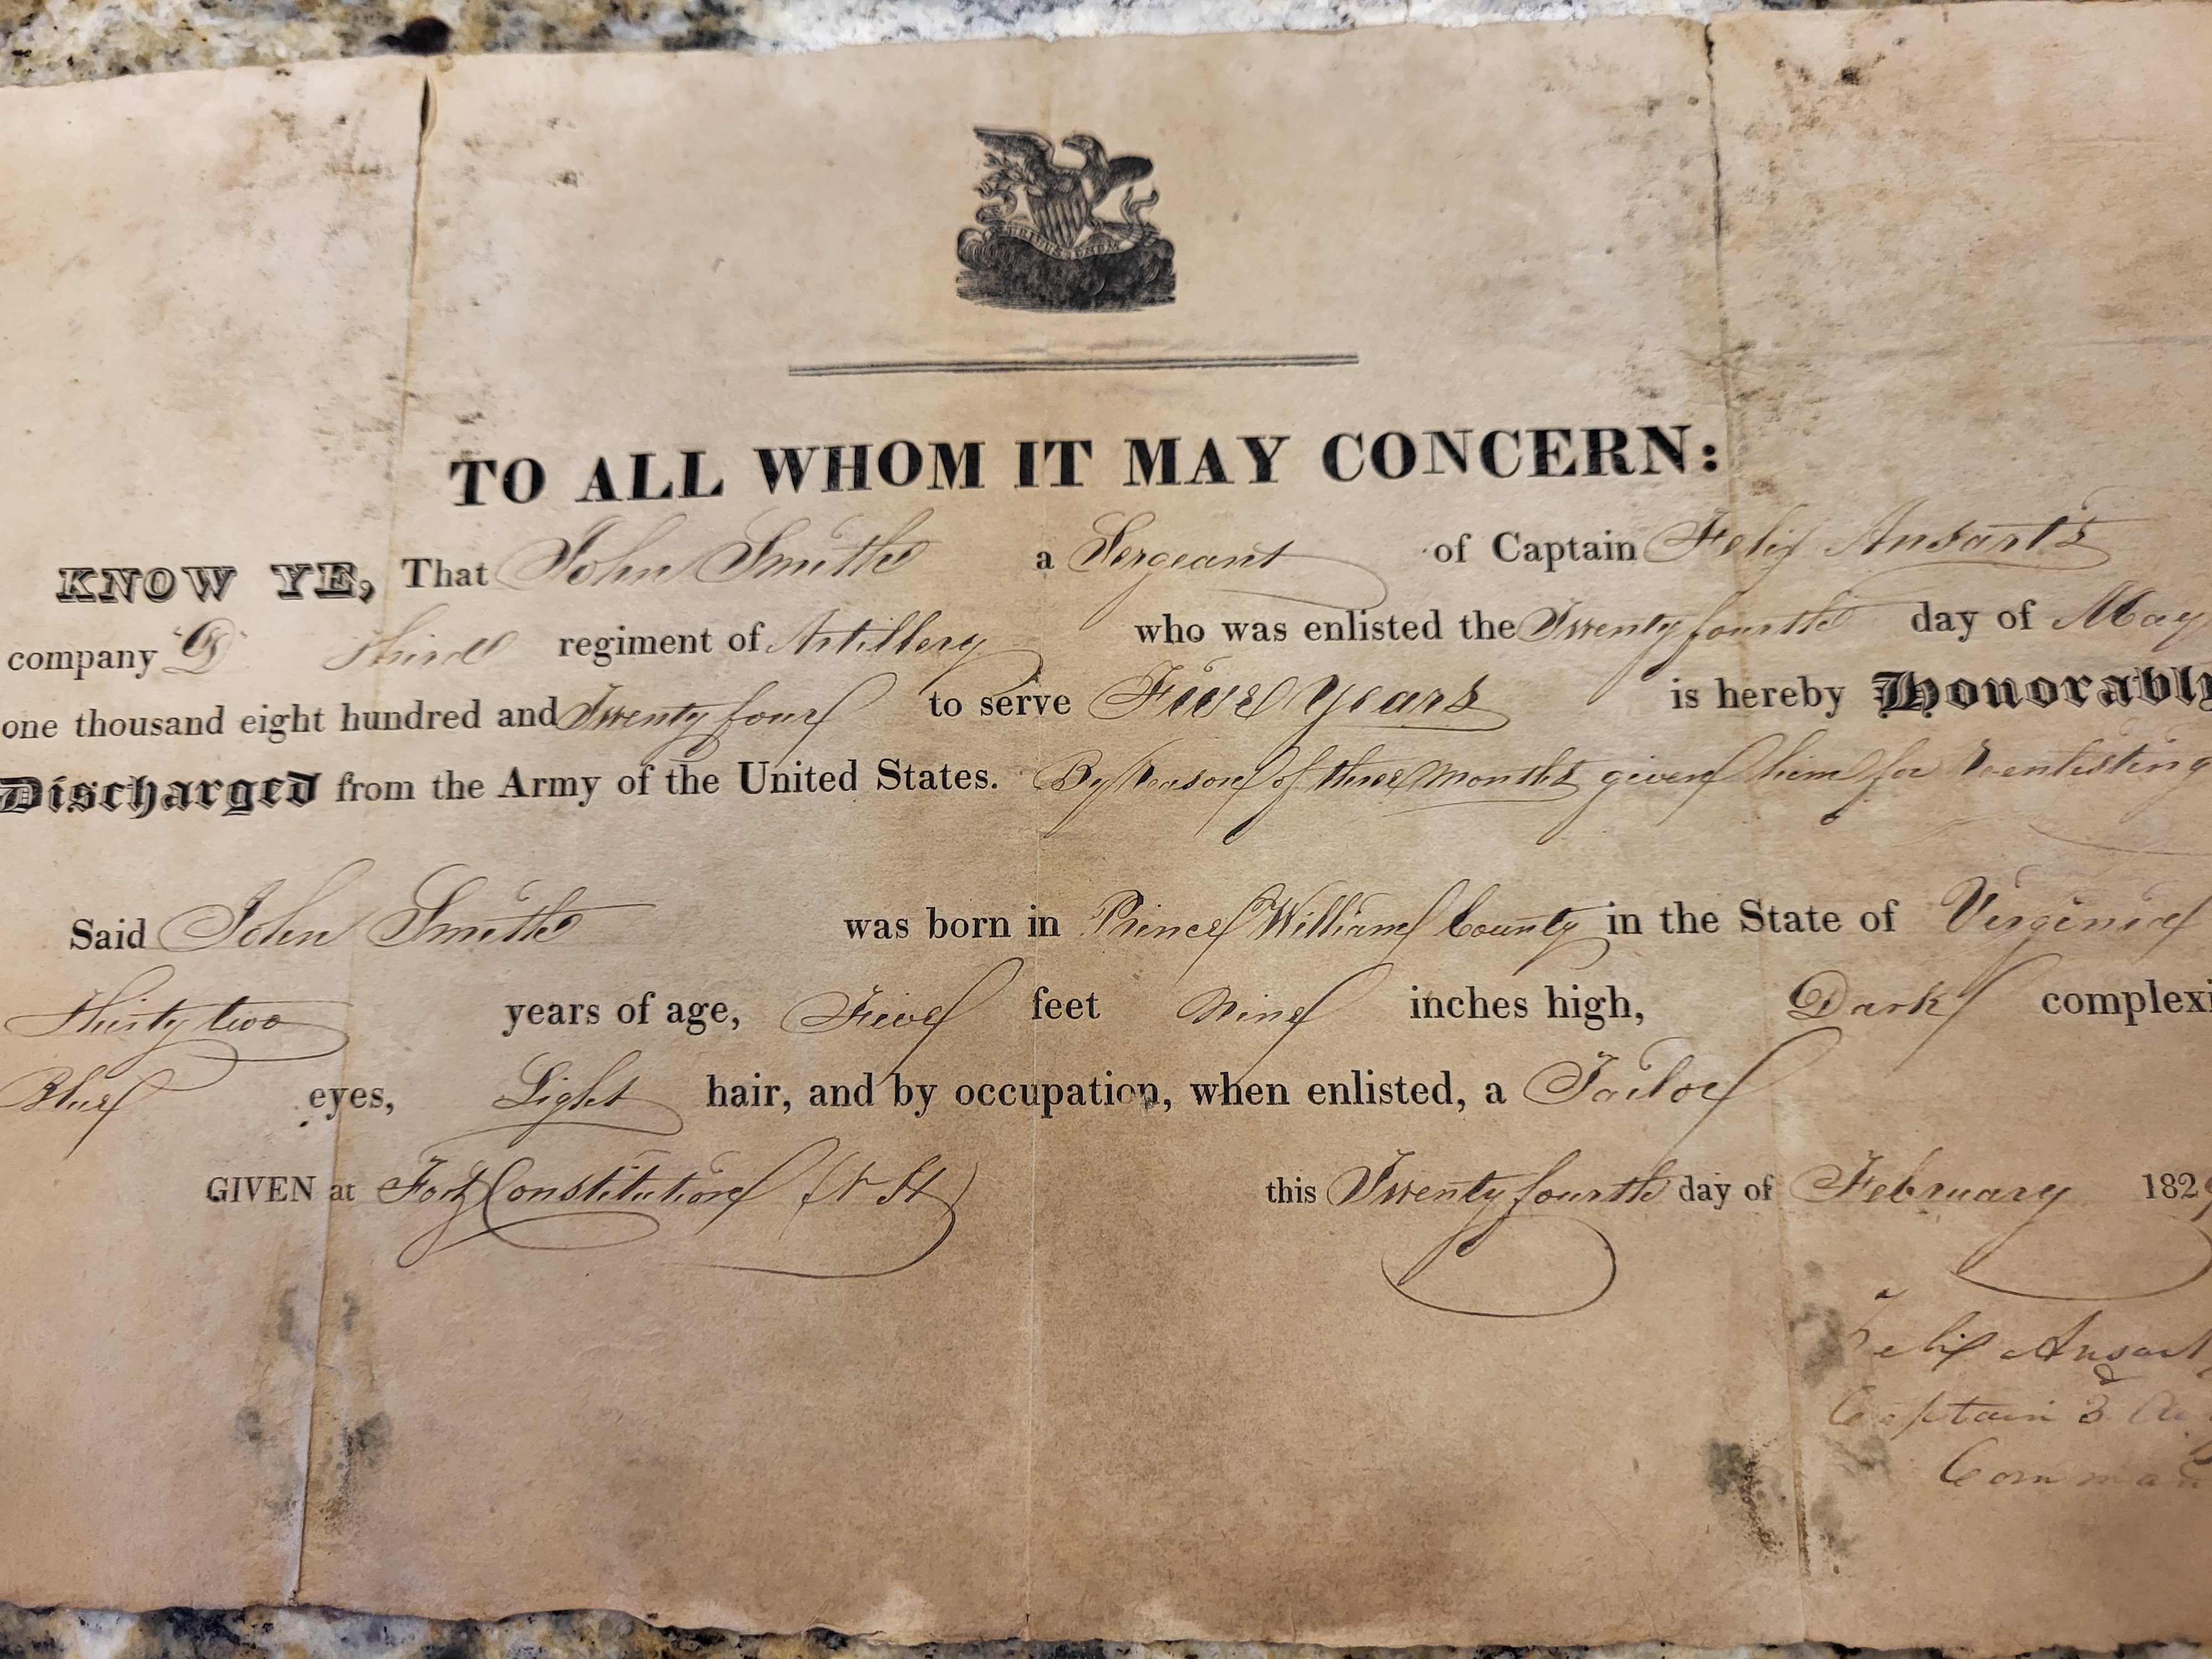 E PLURIBUS UNUM
TO ALL WHOM IT MAY CONCERN:
KNOW YE, That John Smith a Sergeant of Captain Felix Ansart's
company "D" Third regiment of Artillery who was enlisted the Twenty fourth day of May
one thousand eight hundred and Twenty four to serve Five Years is hereby Honorably
Discharged from the Army of the United States. By reason of three months given him for reenlisting
Said John Smith was born in Prince William County in the State of Virginia
Thirty two years of age, Five feet Nine inches high, Dark complexi
Blue eyes, Light hair, and by occupation, when enlisted, a Tailor
GIVEN at Fort Constitution (N H) this Twenty fourth day of February 1829
Felix Ansart
Captain 3
Comman